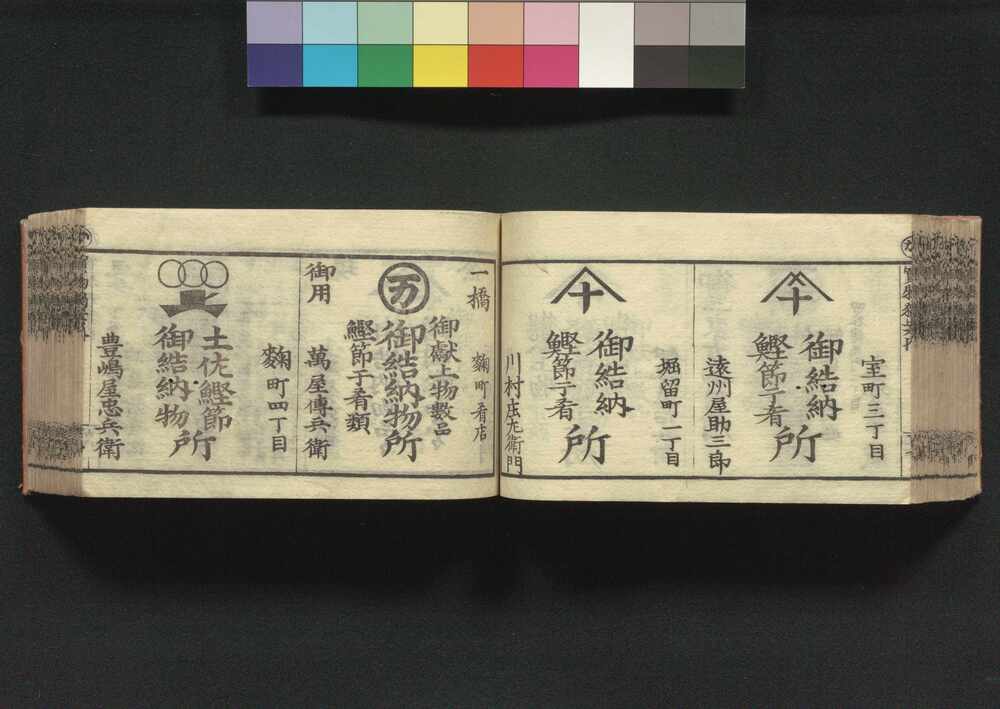 室町三丁目
十
御結納
鰹節干肴
所
遠州屋助三郎
堀留町一丁目
十
御結納
鰹節干肴
所
川村庄左衛門
一橋
麹町肴店
万
御献上物数品
御結納物所
鰹節干肴類
御用
萬屋傳兵衛
麹町四丁目
土佐鰹節
御結納物
所
豊嶋屋忠兵衛